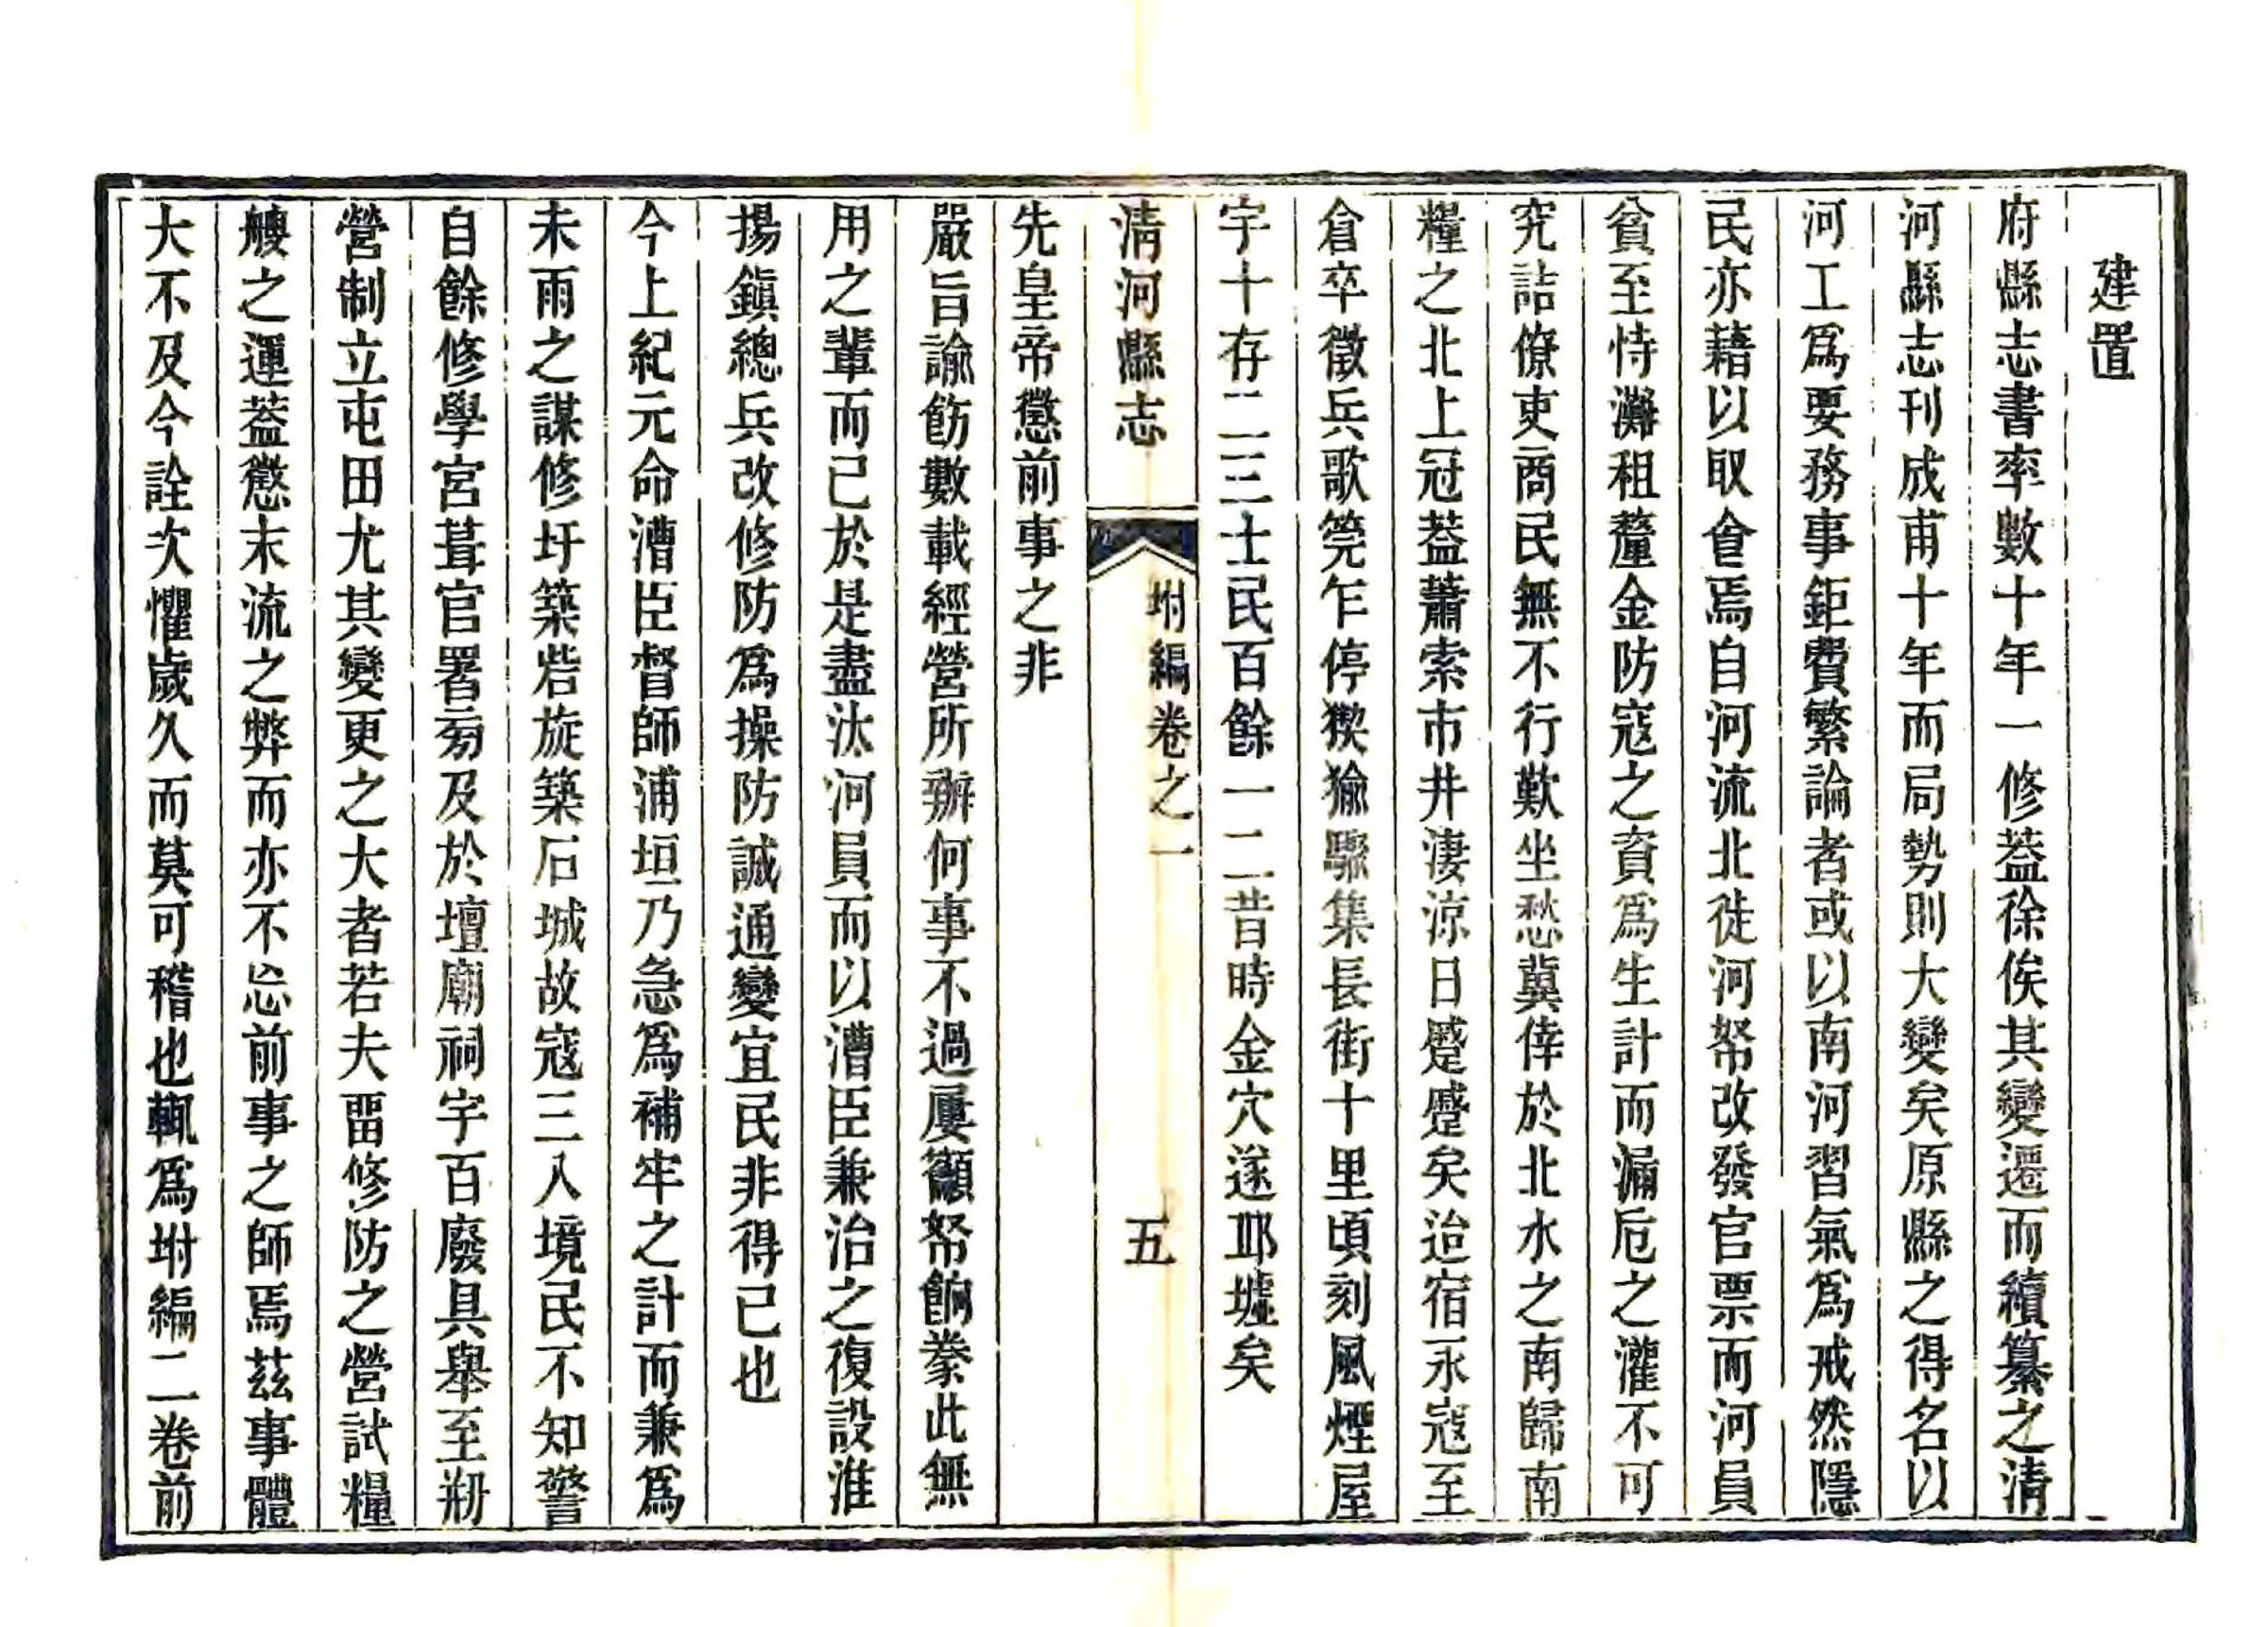 建置
府縣志書率數十年一修蓋徐俟其變遷而續纂之清
河縣志刊成甫十年而局勢則大變矣原縣之得名以
河工爲要務事鉅費繁論者或以南河習氣爲戒然隱
民亦藉以取食焉自河流北徙河帑改發官票而河員
貧至恃灘租釐金防寇之資爲生計而漏卮之灌不可
究詰僚吏商民無不行歎坐愁冀倖於北水之南歸南
糧之北上冠蓋蕭索市井淒涼日蹙蹙矣迨宿永寇至
倉卒徵兵歌筦乍停猰貐驟集長街十里頃刻風煙屋
宇十存二三士民百餘一二昔時金穴遂邱墟矣
清河縣志
坿編卷之一
五
先皇帝懲前事之非
嚴旨諭飭數載經營所辦何事不過屢籲帑餉豢此無
用之輩而已於是盡汰河員而以漕臣兼治之復設淮
揚鎭總兵改修防爲操防誠通變宜民非得已也
今上紀元命漕臣督師浦垣乃急爲補牢之計而兼爲
未雨之謀修圩築砦旋築石城故寇三入境民不知警
自餘修學宮葺官署㫄及於壇廟祠宇百廢具舉至剙
營制立屯田尤其變更之大者若夫畱修防之營試糧
艘之運蓋懲末流之弊而亦不忘前事之師焉茲事體
大不及今詮次懼歲久而莫可稽也輒爲坿編二卷前